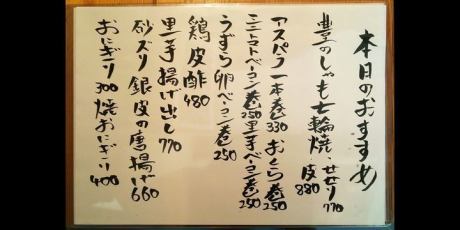 本日のおすすめ
豊のしゃも七輪焼、せせり770
皮880
アスパラ一本巻330 おくら巻250
ミニトマトベーコン巻250 里芋ベーコン巻250
うずら卵ベーコン巻250
鶏皮酢480
里芋揚げ出し770
砂ズリ銀皮の唐揚げ660
おにぎり300 焼おにぎり400